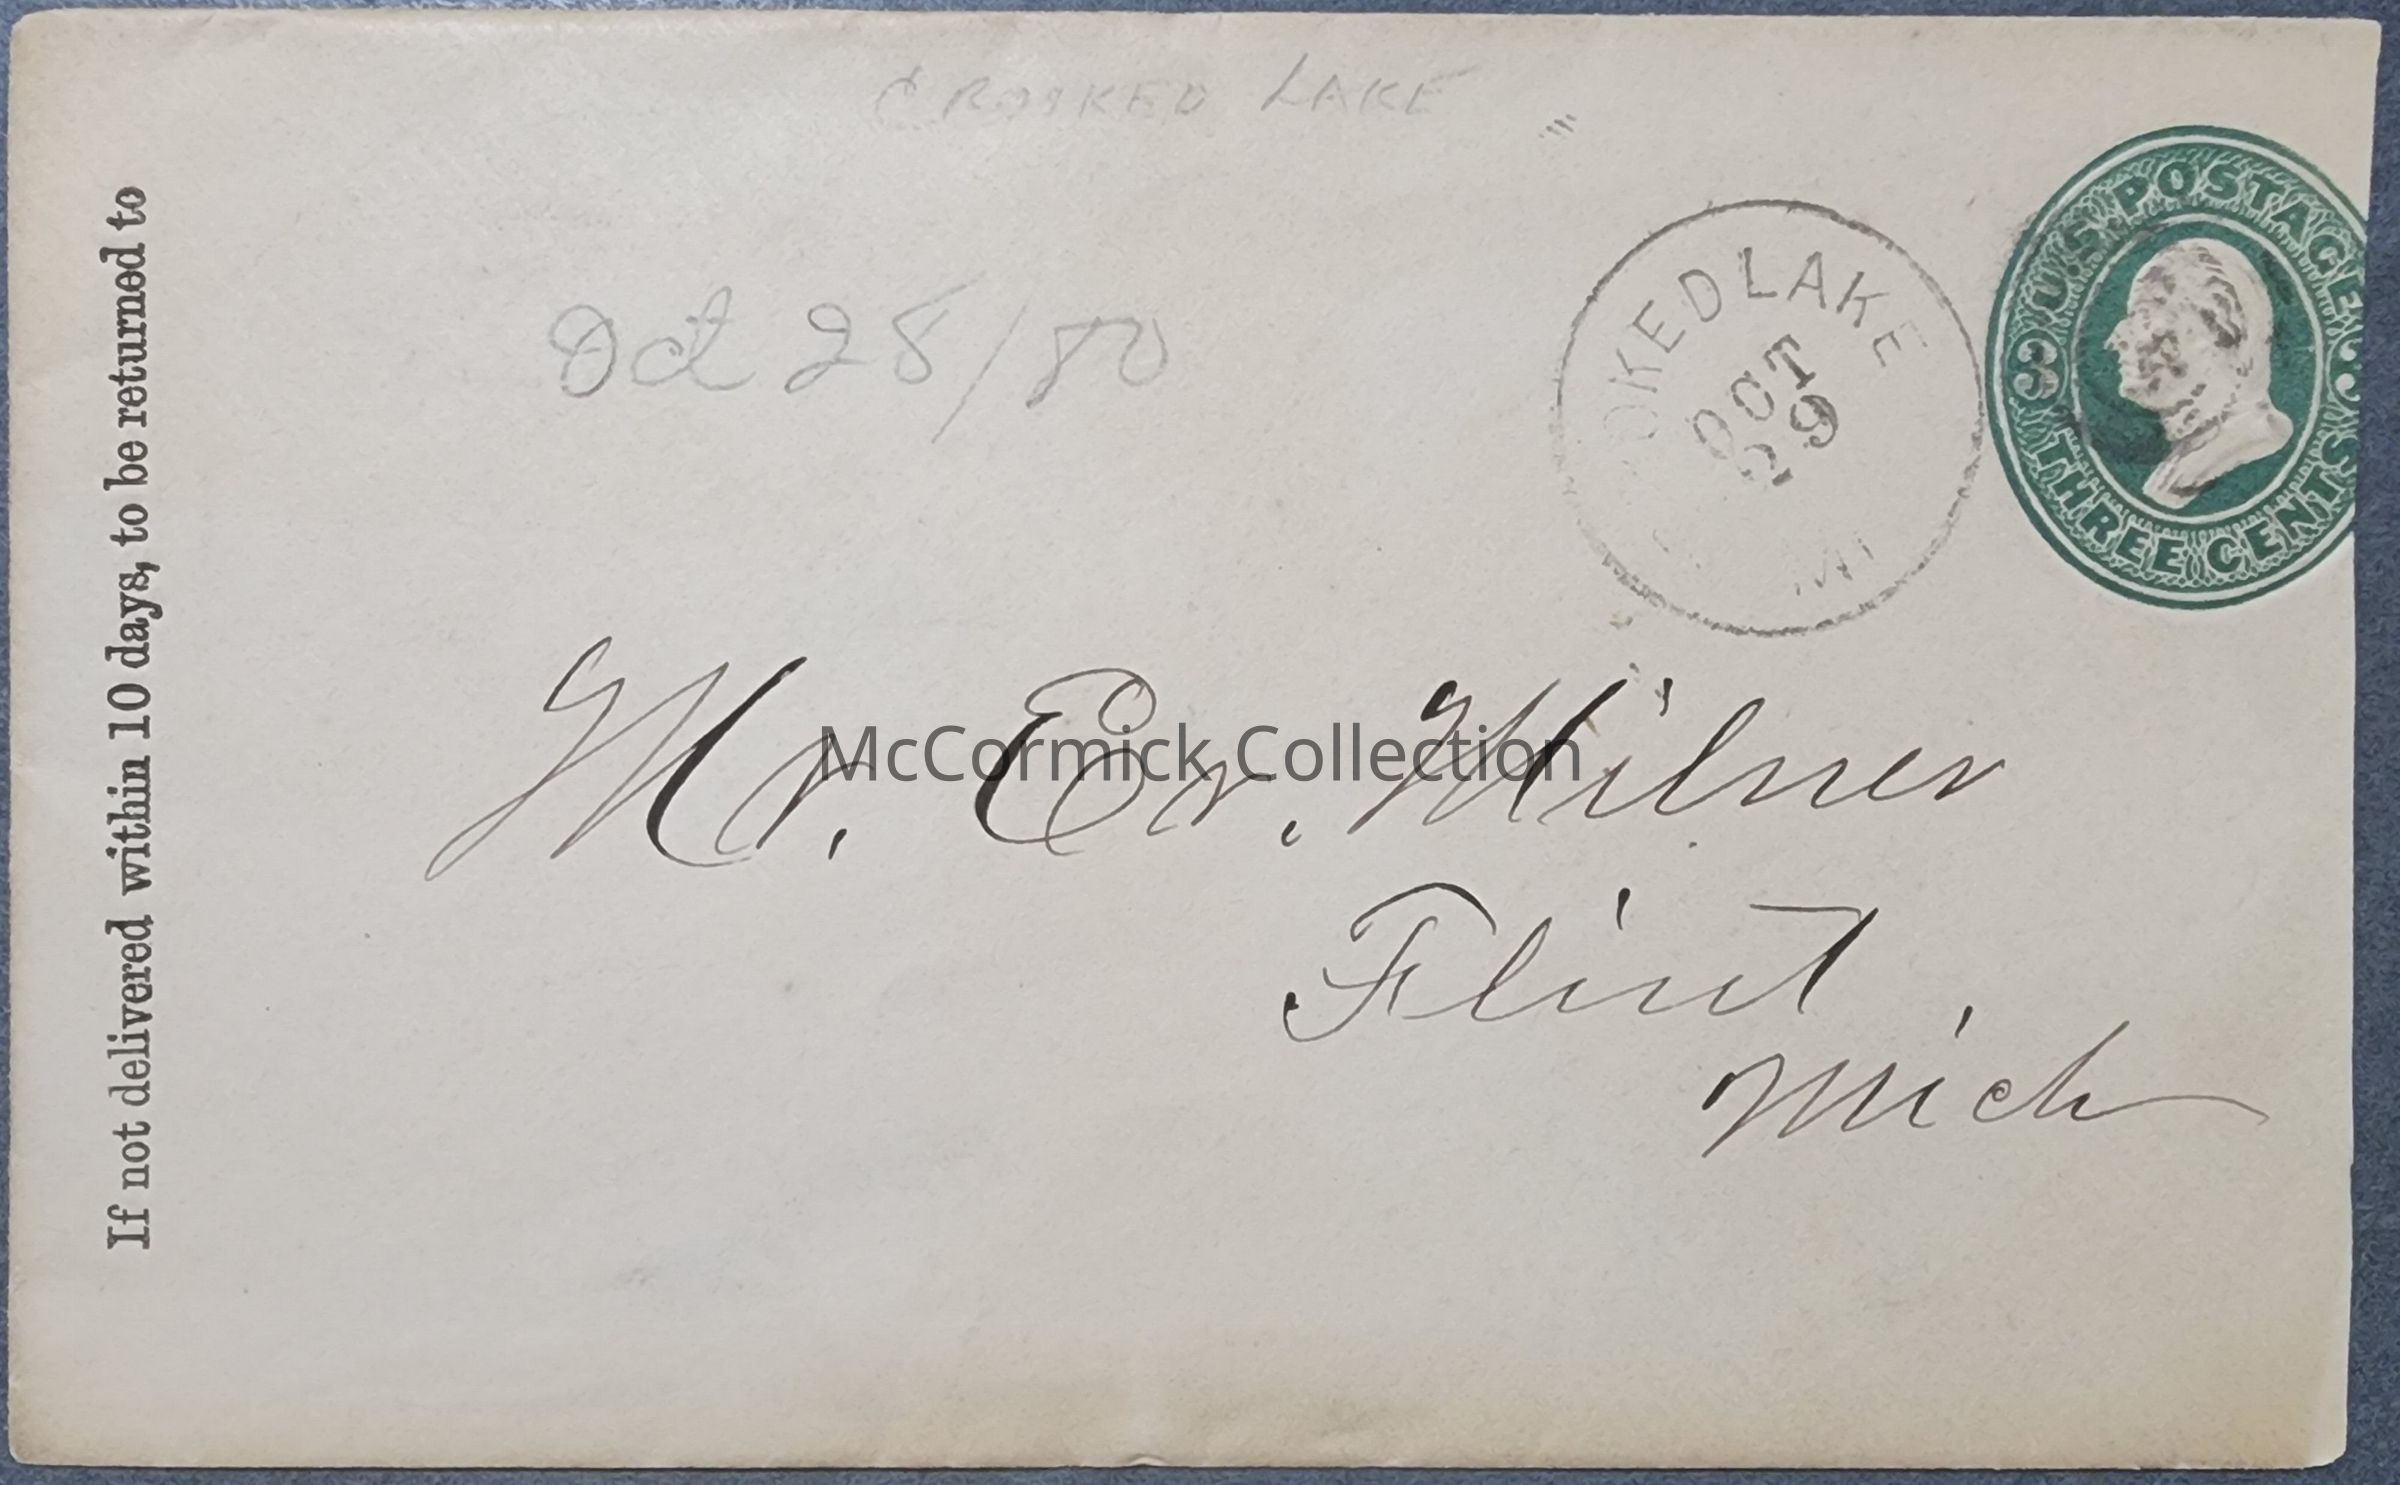 CROOKED LAKE
Oct 28/80
OKED LAKE
OCT
29
MI
U.S. POSTAGE
3 3
THREE CENTS
If not delivered within 10 days, to be returned to
Mr. Er. Milner
Flint,
Mich
McCormick Collection